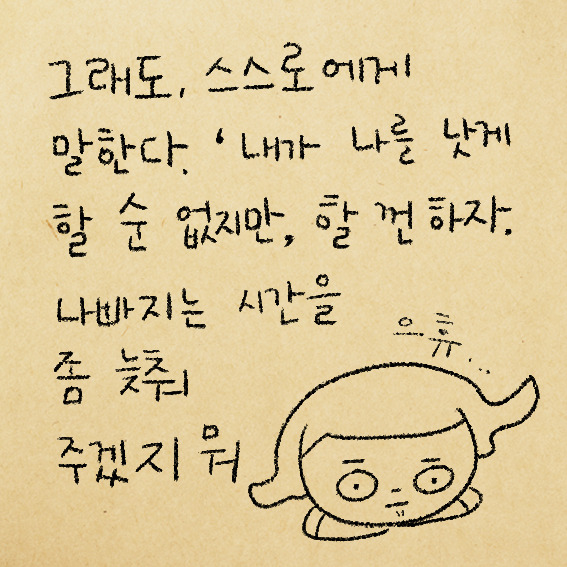 그래도, 스스로에게
말한다. '내가 나를 낫게
할 순 없지만, 할 껀 하자.
나빠지는 시간을
좀 늦춰
주겠지 뭐
으휴...